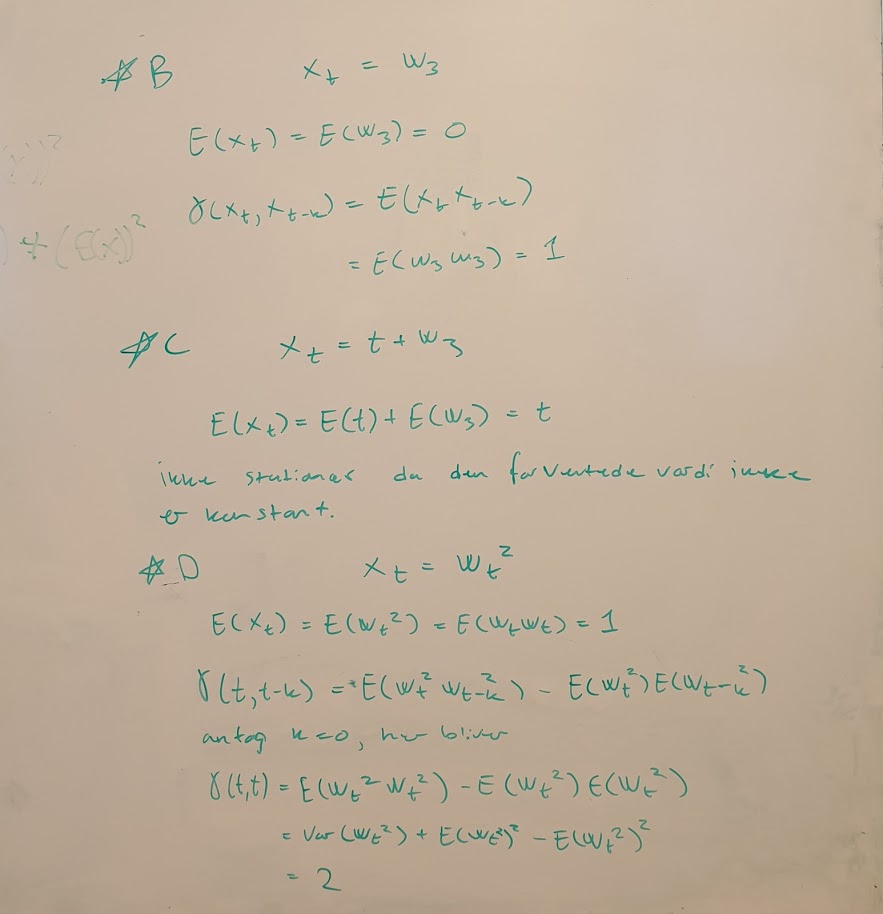 # B xₜ = w₃
E(xₜ) = E(w₃) = 0
γ(xₜ, xₜ₋ₖ) = E(xₜ xₜ₋ₖ)
+ (E(x))²
= E(w₃ w₃) = 1
# C xₜ = t + w₃
E(xₜ) = E(t) + E(w₃) = t
ikke stationær da den forventede værdi ikke
er konstant.
# D xₜ = wₜ²
E(xₜ) = E(wₜ²) = E(wₜwₜ) = 1
γ(t, t-k) = E(wₜ² wₜ₋ₖ²) - E(wₜ²)E(wₜ₋ₖ²)
antag k=0, her bliver
γ(t,t) = E(wₜ² wₜ²) - E(wₜ²) E(wₜ²)
= Var(wₜ²) + E(wₜ²)² - E(wₜ²)²
= 2